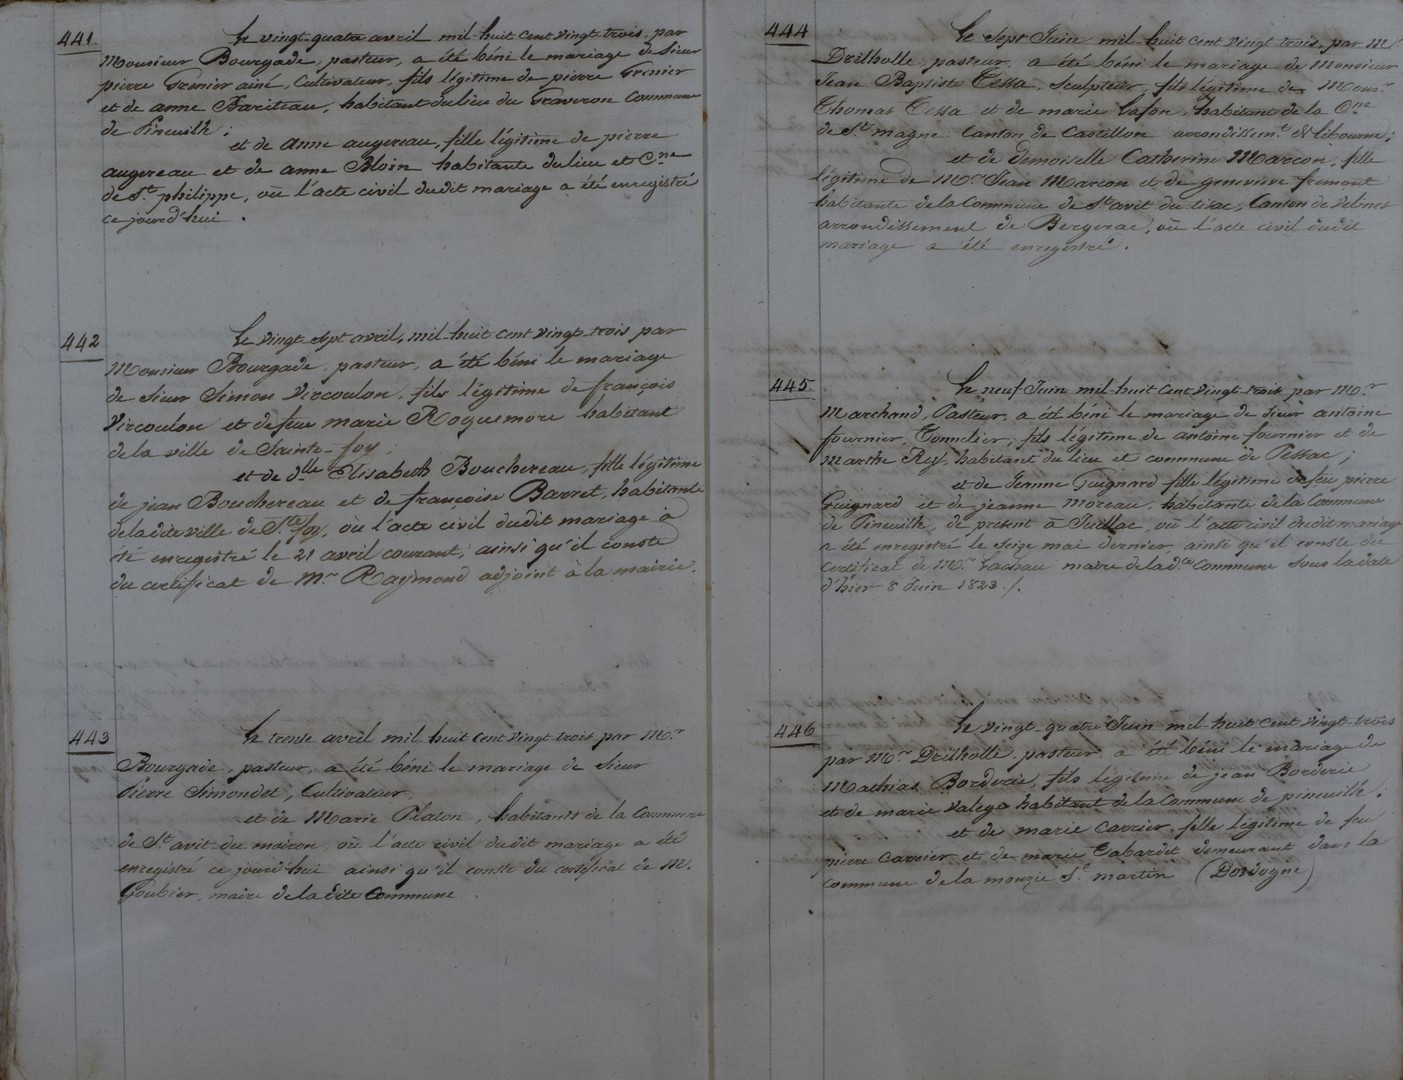 441
Le vingt-quatre avril mil-huit cent vingt-trois, par
Monsieur Bourgade, pasteur, a été béni le mariage de Sieur
pierre Grenier ainé, Cultivateur, fils légitime de pierre Grenier
et de anne Bariteau, habitant du lieu du Graveron Commune
de Pineuilh ;
et de anne augereau, fille légitime de pierre
augereau et de anne Bloin habitante du lieu et Cne
de St. philippe, où l'acte civil dudit mariage a été enregistré
ce jourd'hui .
442
Le vingt-sept avril, mil-huit cent vingt-trois par
Monsieur Bourgade, pasteur, a été béni le mariage
de Sieur Simon Vircoulon, fils légitime de françois
Vircoulon et de feue marie Roquemore habitant
de la ville de Sainte-foy.
et de dlle Elisabeth Bouchereau, fille légitime
de jean Bouchereau et de françoise Barret, habitante
de la dite ville de Ste foy, où l'acte civil dudit mariage a
été enregistré le 21 avril courant, ainsi qu'il conste
du certificat de Mr Raymond adjoint à la mairie.
443
Le trente avril mil-huit cent vingt-trois par Mr
Bourgade, pasteur, a été béni le mariage de Sieur
Pierre Simondet, Cultivateur
et de Marie Platon, habitants de la Commune
de St avit du moiron où l'acte civil dudit mariage a été
enregistré ce jourd'hui ainsi qu'il conste du certificat de M.
Goubier, maire de la dite Commune .
444
Le Sept Juin mil-huit cent vingt trois, par Mr
Drilholle, pasteur, a été béni le mariage de Monsieur
Jean Baptiste Tessa, Sculpteur, fils légitime de Monsr
Thomas Tessa et de marie Lafon, habitant de la Cne
de St magne Canton de Castillon arrondissemt de libourne ;
et de Demoiselle Catherine Marcon, fille
légitime de Mr Jean Marcon et de genevieve fremont
habitante de la Commune de St avit du tizac, Canton de Velines
arrondissement de Bergerac, où l'acte civil dudit
mariage a été enregistré .
445
Le neuf Juin mil-huit cent vingt-trois, par Mr
Marchand, Pasteur, a été béni le mariage de Sieur antoine
fournier, Tonnelier, fils légitime de antoine fournier et de
Marthe Rey, habitant du lieu et commune de Pessac ;
et de Jeanne Guignard fille légitime de feu pierre
Guignard et de jeanne moreau, habitante de la Commune
de Pineuilh, de présent à Juillac, où l'acte civil dudit mariage
a été enregistré le Seize mai dernier, ainsi qu'il conste du
certificat de Mr Lachau maire de la de Commune sous la date
d'hier 8 Juin 1823 ./.
446
Le vingt quatre Juin mil-huit cent vingt-trois
par Mr Drilholle, pasteur a été béni le mariage de
Mathias Borderie, fils légitime de jean Borderie
et de marie Valega habitant de la Commune de pineuilh.
et de marie Carrier, fille légitime de feu
pierre Carrier et de marie Tabardit demeurant dans la
commune de la mouzie St martin (Dordogne)